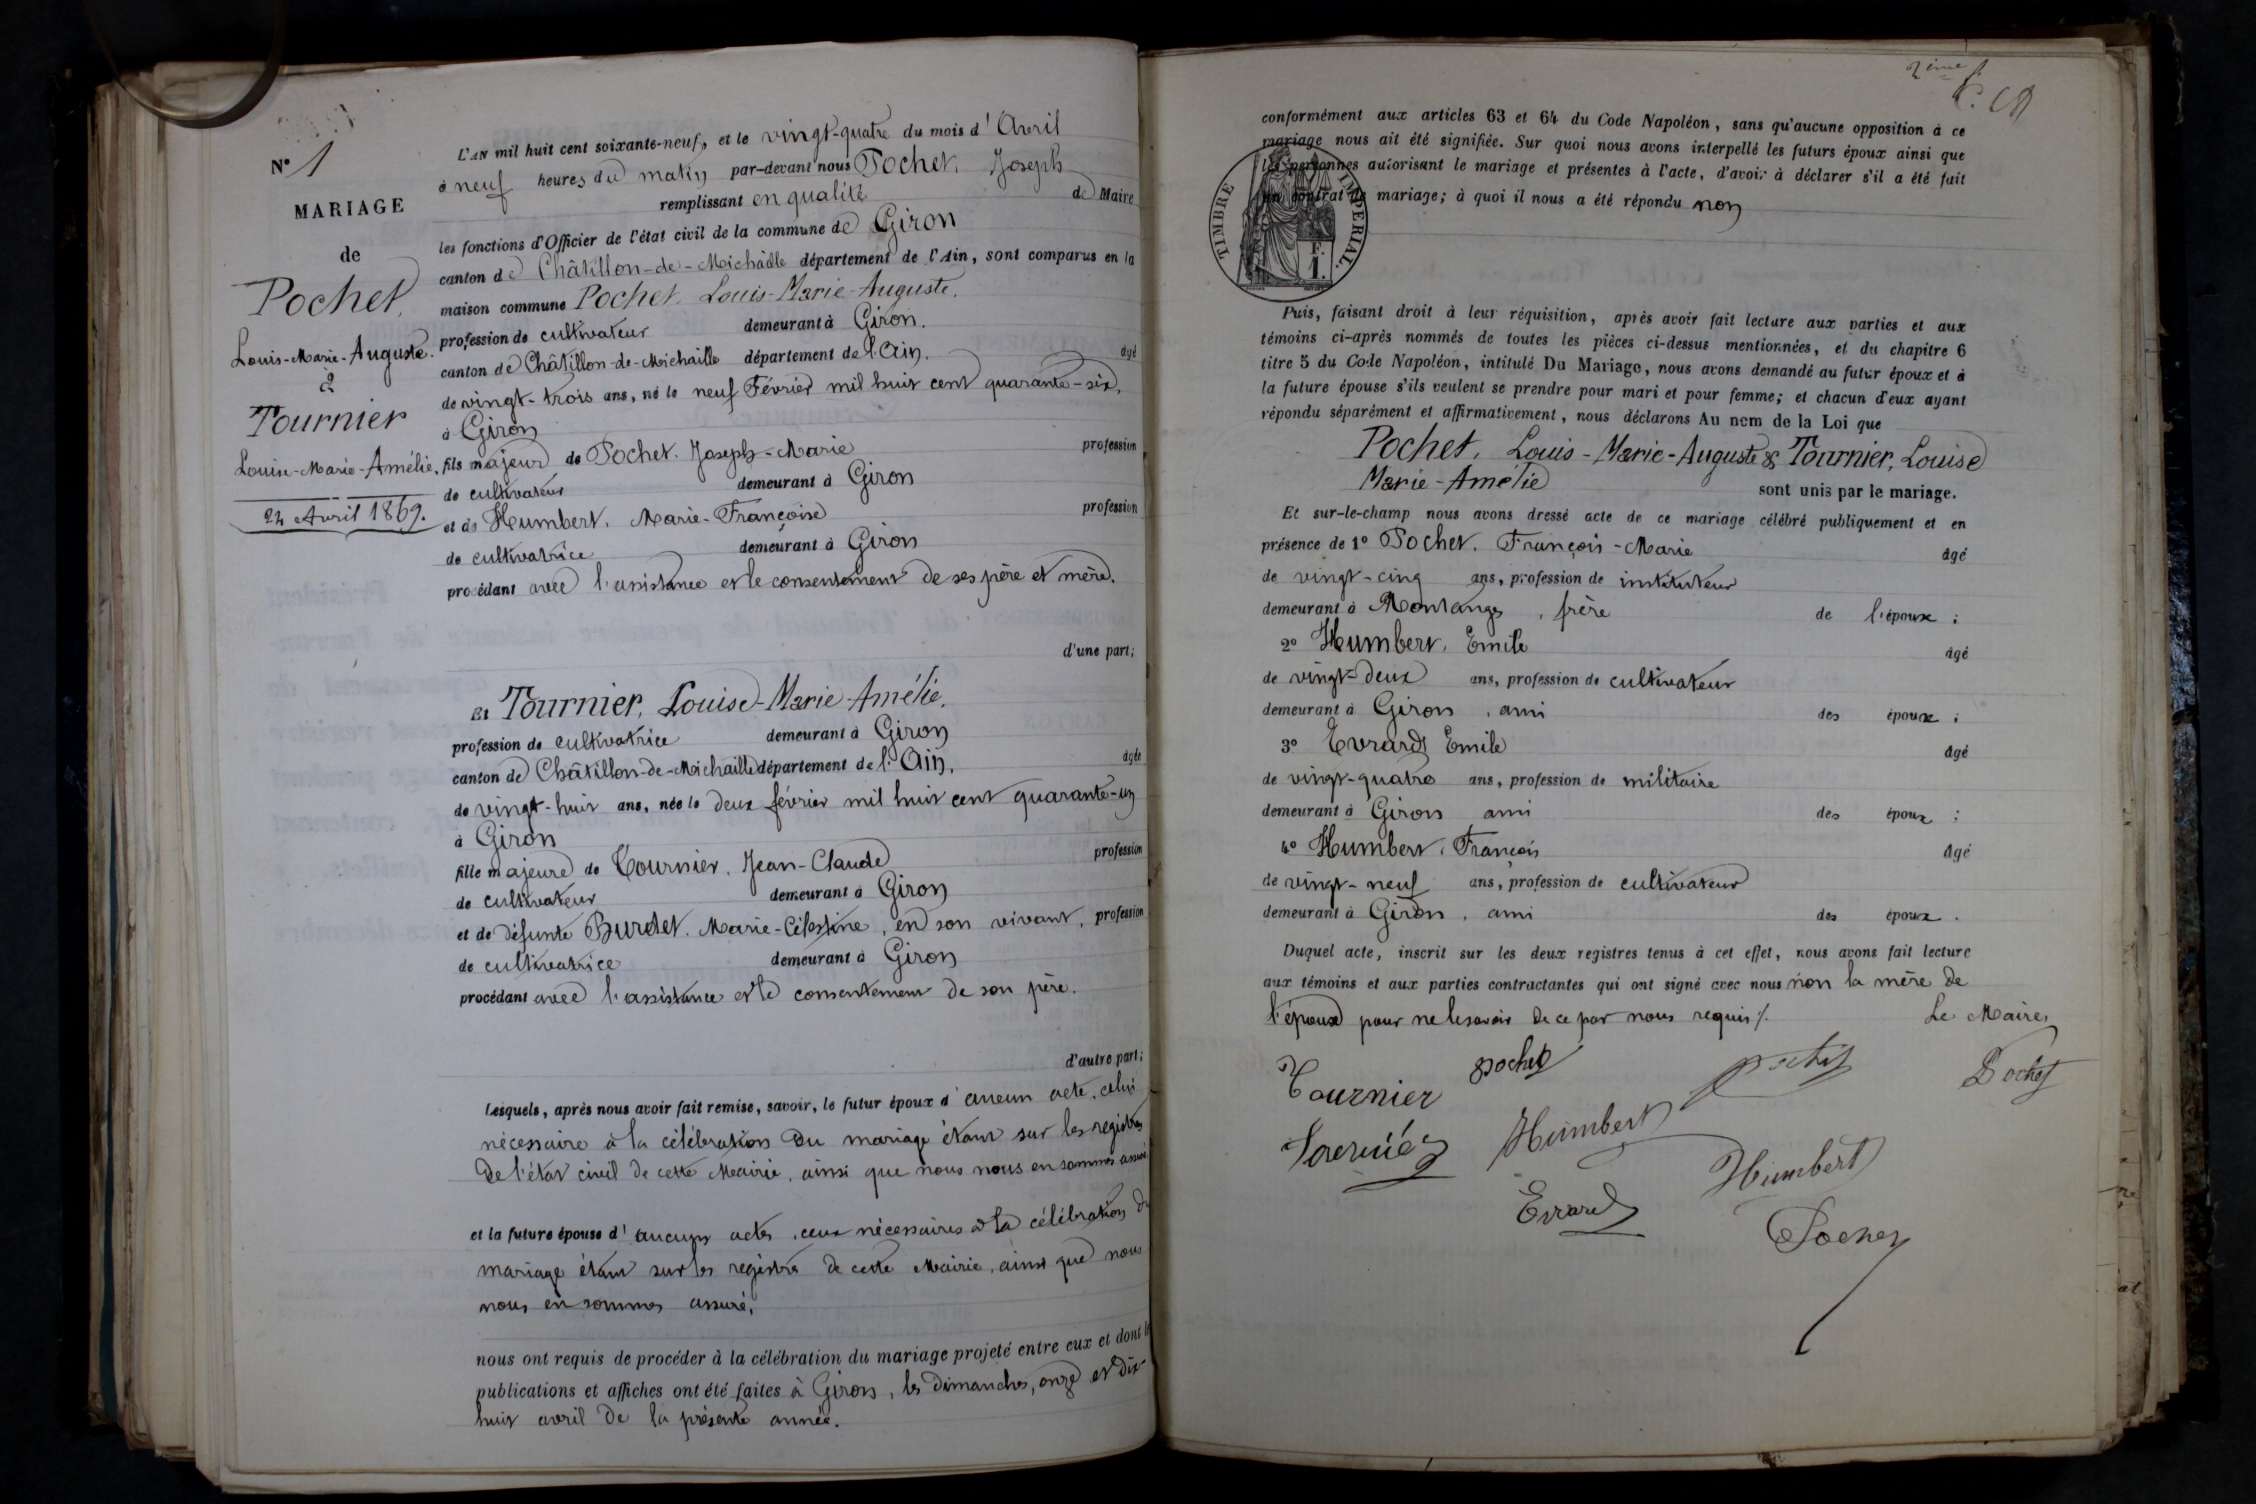 N° 1
MARIAGE
de
Pochet,
Louis-Marie-Auguste.
à
Tournier
Louise-Marie-Amélie.
24 Avril 1869.
L'AN mil huit cent soixante-neuf, et le vingt-quatre du mois d'Avril
à neuf heures du matin par-devant nous Pochet, Joseph
remplissant en qualité de Maire
les fonctions d'Officier de l'état civil de la commune de Giron
canton de Châtillon-de-Michaille département de l'Ain, sont comparus en la
maison commune Pochet, Louis-Marie-Auguste.
profession de cultivateur demeurant à Giron.
canton de Châtillon-de-Michaille département de l'Ain. âgé
de vingt-trois ans, né le neuf Février mil huit cent quarante-six,
à Giron
fils majeur de Pochet. Joseph-Marie profession
de cultivateur demeurant à Giron
et de Humbert. Marie-Françoise profession
de cultivatrice demeurant à Giron
procédant avec l'assistance et le consentement de ses père et mère.
d'une part;
Et Tournier, Louise-Marie-Amélie.
profession de cultivatrice demeurant à Giron
canton de Châtillon-de-Michaille département de l'Ain. âgée
de vingt-huit ans, née le deux février mil huit cent quarante-un
à Giron
fille majeure de Tournier, Jean-Claude profession
de cultivateur demeurant à Giron
et de défunte Burdet. Marie-Célestine, en son vivant, profession
de cultivatrice demeurant à Giron
procédant avec l'assistance et le consentement de son père.
d'autre part;
Lesquels, après nous avoir fait remise, savoir, le futur époux d'aucun acte, celui
nécessaire à la célébration du mariage étant sur les registres
de l'état civil de cette Mairie, ainsi que nous nous en sommes assuré
et la future épouse d'aucuns actes, ceux nécessaires à la célébration du
mariage étant sur les registres de cette Mairie, ainsi que nous
nous en sommes assuré,
nous ont requis de procéder à la célébration du mariage projeté entre eux et dont les
publications et affiches ont été faites à Giron, les dimanches, onze et dix-
huit avril de la présente année.
2ème f.
conformément aux articles 63 et 64 du Code Napoléon, sans qu'aucune opposition à ce
mariage nous ait été signifiée. Sur quoi nous avons interpellé les futurs époux ainsi que
les personnes autorisant le mariage et présentes à l'acte, d'avoir à déclarer s'il a été fait
un contrat de mariage; à quoi il nous a été répondu non
TIMBRE IMPERIAL.
F.
1.
Puis, faisant droit à leur réquisition, après avoir fait lecture aux parties et aux
témoins ci-après nommés de toutes les pièces ci-dessus mentionnées, et du chapitre 6
titre 5 du Code Napoléon, intitulé Du Mariage, nous avons demandé au futur époux et à
la future épouse s'ils veulent se prendre pour mari et pour femme; et chacun d'eux ayant
répondu séparément et affirmativement, nous déclarons Au nom de la Loi que
Pochet, Louis-Marie-Auguste & Tournier, Louise
Marie-Amélie sont unis par le mariage.
Et sur-le-champ nous avons dressé acte de ce mariage célébré publiquement et en
présence de 1° Pochet. François-Marie âgé
de vingt-cinq ans, profession de instituteur
demeurant à Montanges, frère de l'époux;
2° Humbert, Emile âgé
de vingt-deux ans, profession de cultivateur
demeurant à Giron, ami des époux;
3° Evrard Emile âgé
de vingt-quatre ans, profession de militaire
demeurant à Giron ami des époux;
4° Humbert, François âgé
de vingt-neuf ans, profession de cultivateur
demeurant à Giron, ami des époux.
Duquel acte, inscrit sur les deux registres tenus à cet effet, nous avons fait lecture
aux témoins et aux parties contractantes qui ont signé avec nous non la mère de
l'époux pour ne le savoir de ce par nous requis ./.
Le Maire,
Tournier Pochet Pochet Pochet
Humbert
Humbert
Evrard
Pochet